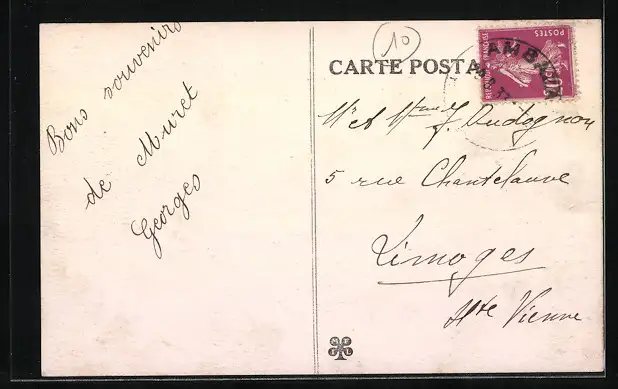 Bons souvenirs
de Muret
Georges
10
CARTE POSTA
POSTES
AMBA
Mr et Mme J. Audognon
5 rue Chantelauve
Limoges
Hte Vienne